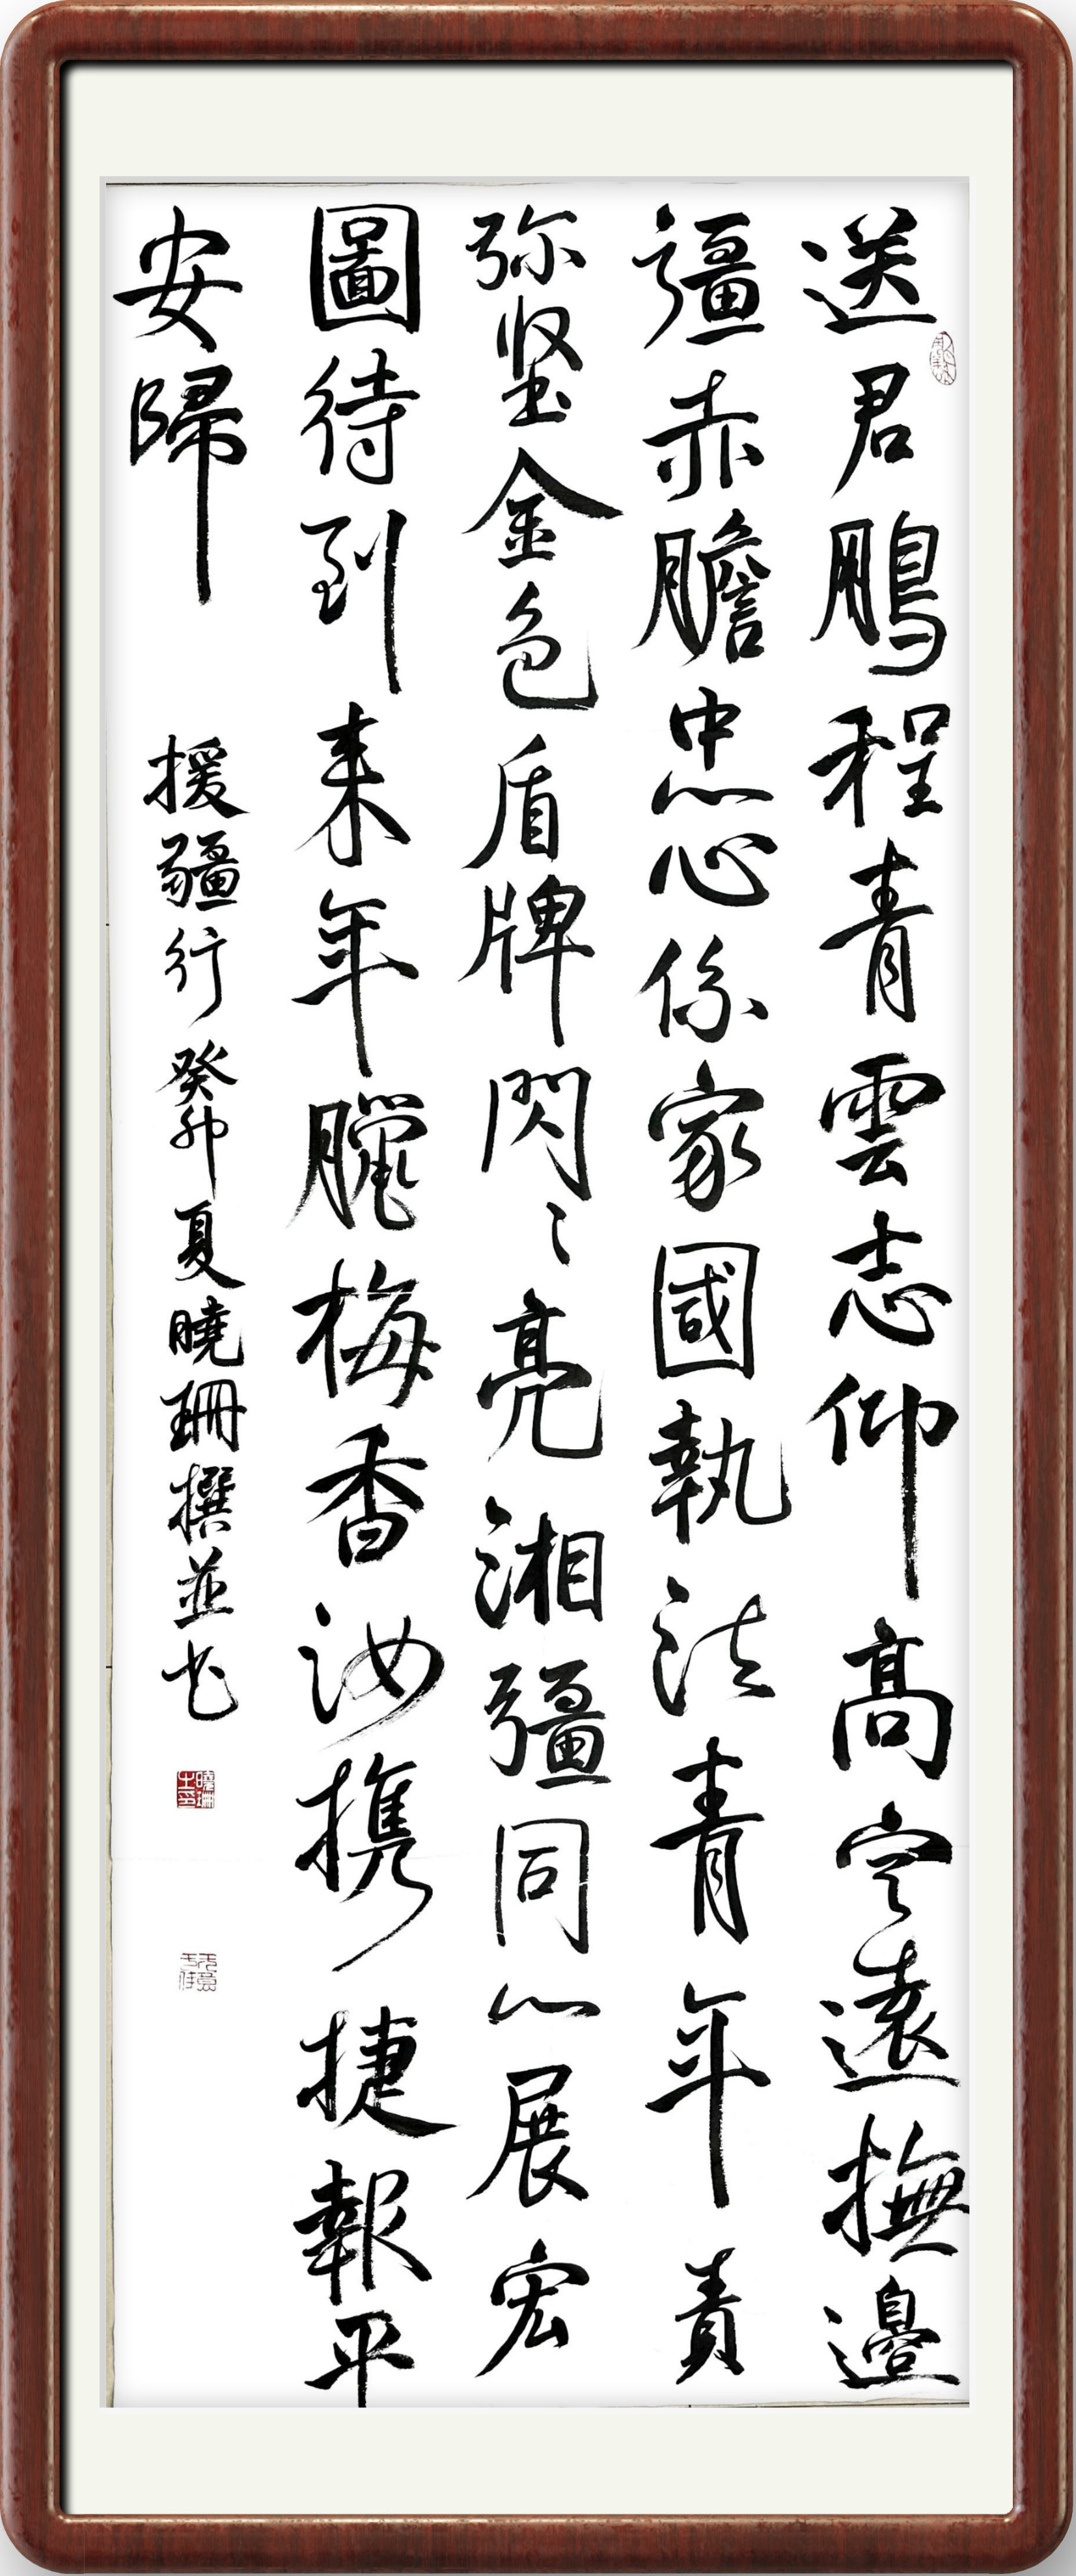 送君鵬程青雲志仰高空遠撫邊
疆赤膽忠心係家國執法青年責
弥坚金色盾牌閃〻亮湘疆同心展宏
圖待到来年臘梅香汝携捷報平
安歸
援疆行癸卯夏曉珊撰並书